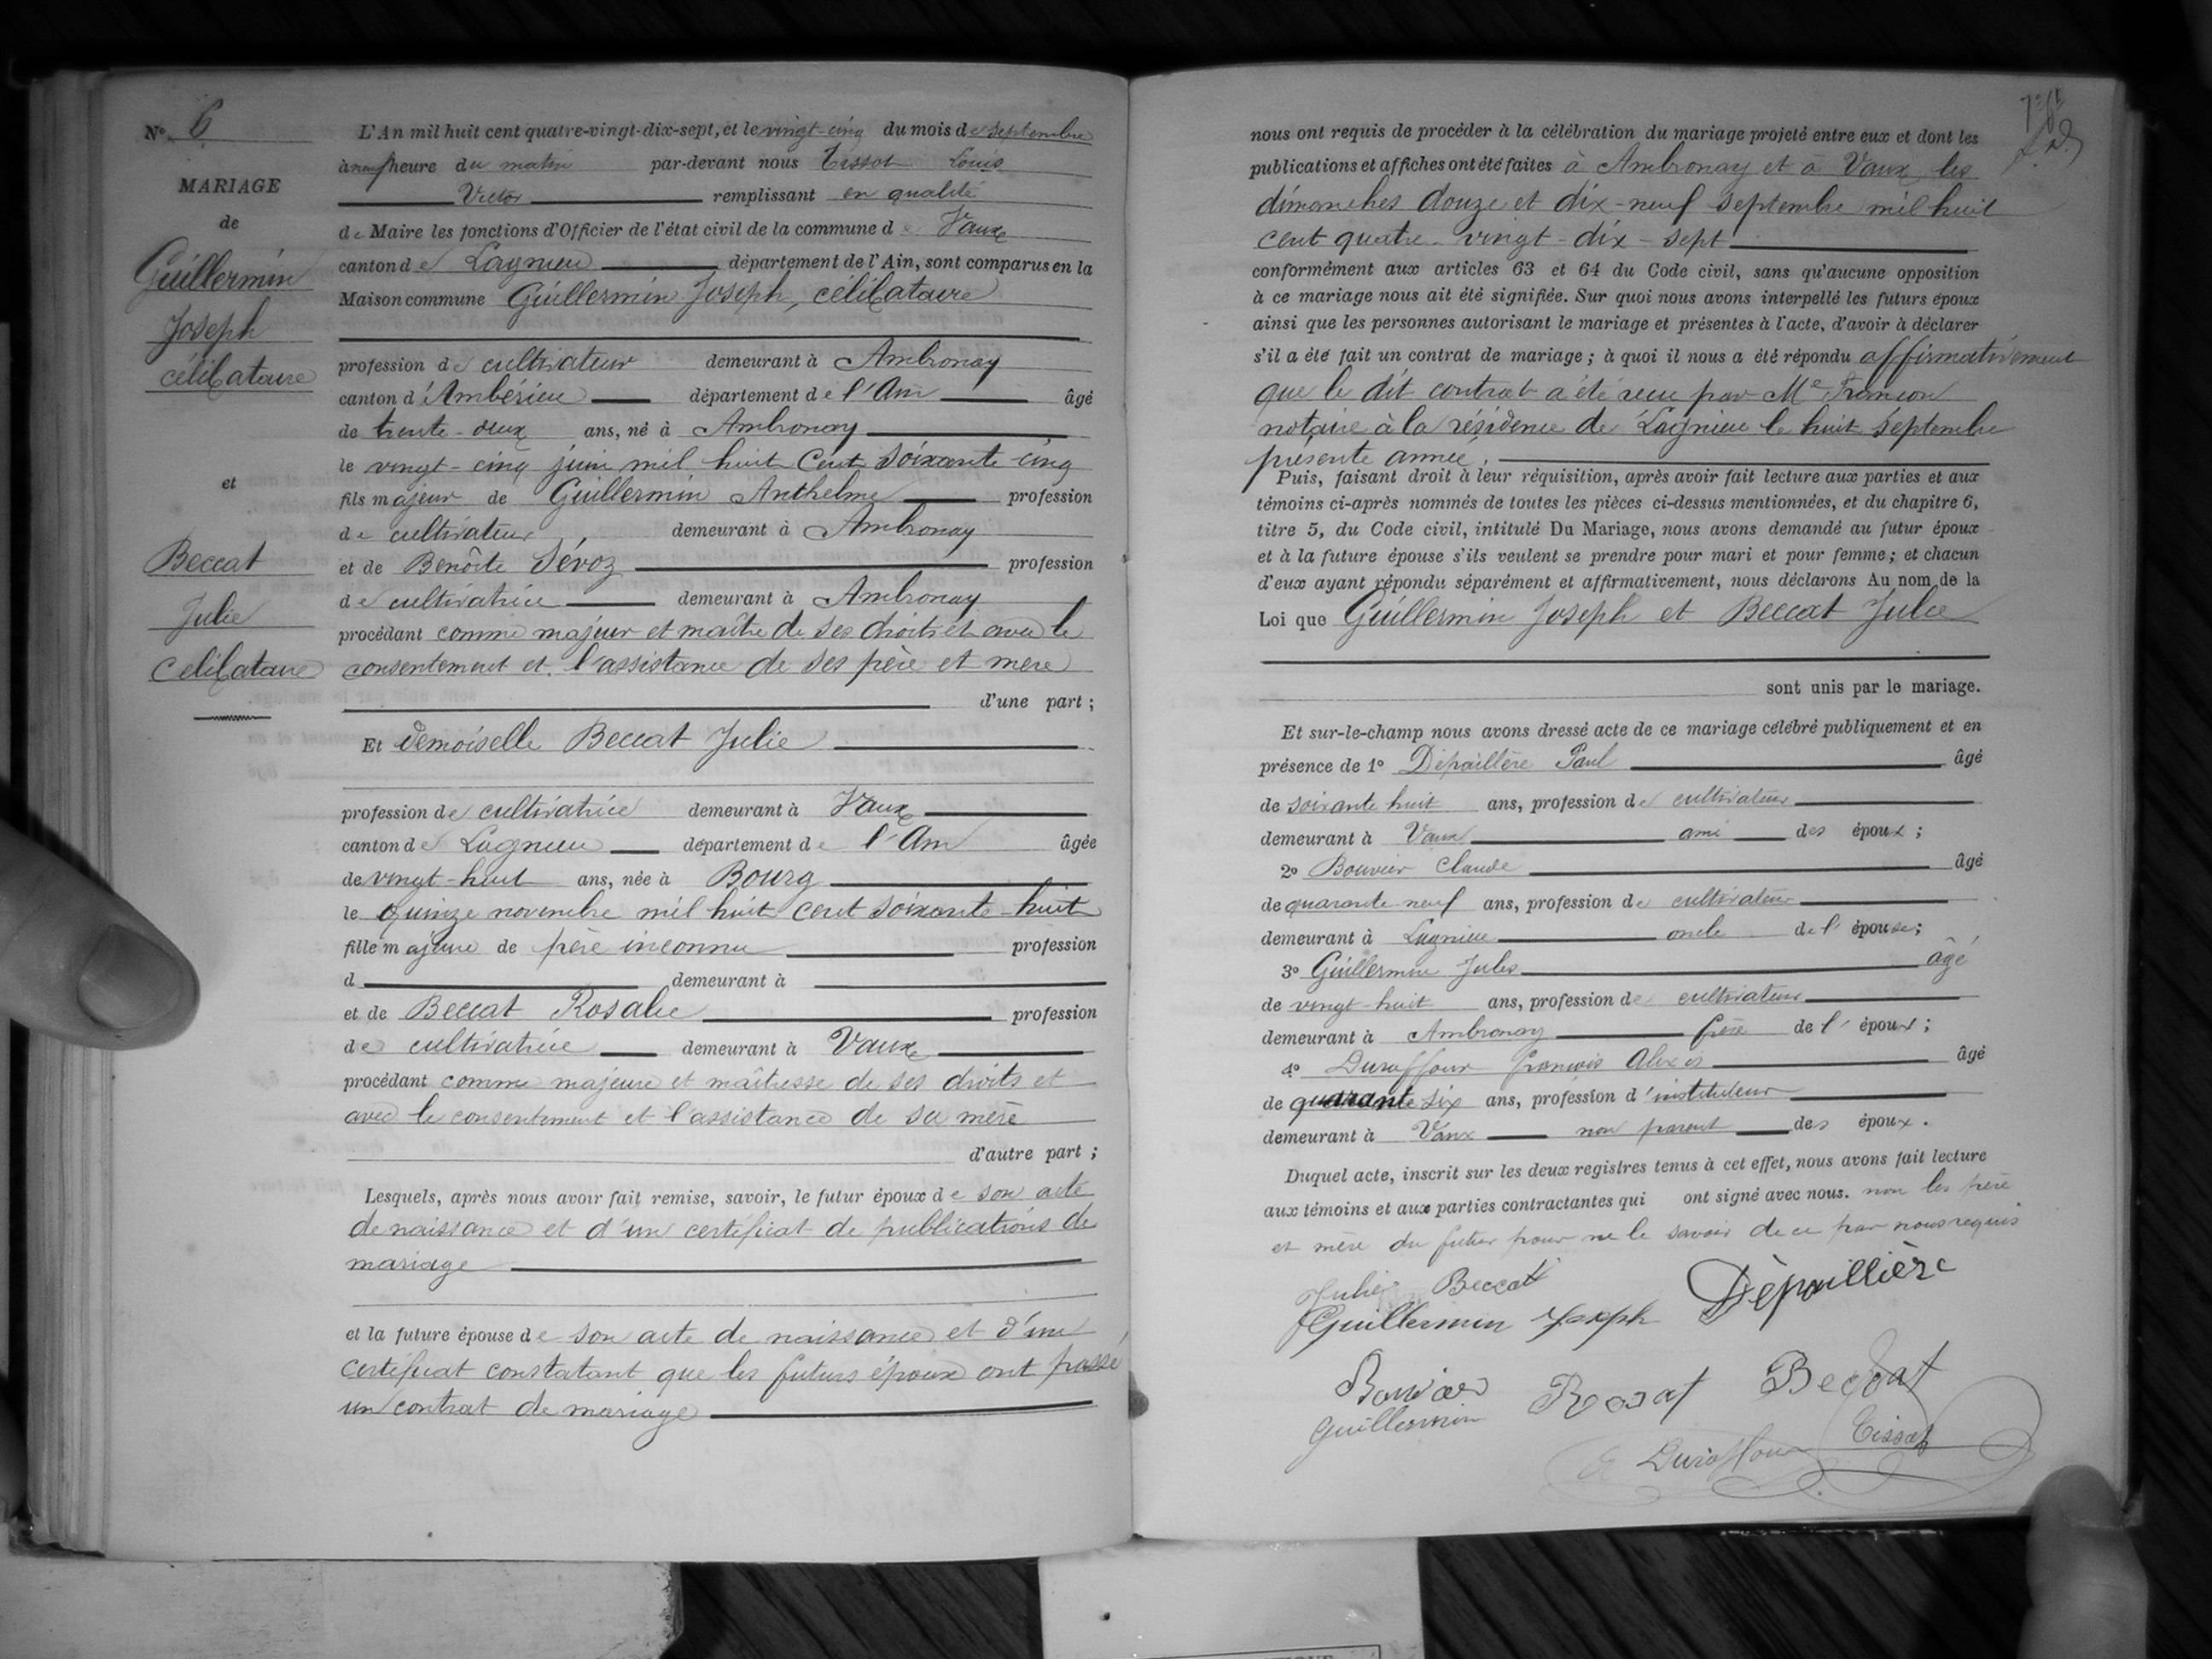 N° 6
MARIAGE
de
Guillermin
Joseph
célibataire
et
Beccat
Julie
Célibataire
L'An mil huit cent quatre-vingt-dix-sept, et le vingt-cinq du mois de septembre
à neuf heure du matin par-devant nous Tissot Louis
Victor remplissant en qualité
de Maire les fonctions d'Officier de l'état civil de la commune de Vaux
canton de Lagnieu département de l'Ain, sont comparus en la
Maison commune Guillermin Joseph, célibataire
profession de cultivateur demeurant à Ambronay
canton d'Ambérieu département de l'Ain âgé
de trente-deux ans, né à Ambronay
le vingt-cinq juin mil huit Cent soixante cinq
fils majeur de Guillermin Anthelme profession
de cultivateur demeurant à Ambronay
et de Benoîte Sévoz profession
de cultivatrice demeurant à Ambronay
procédant comme majeur et maître de ses droits et avec le
consentement et l'assistance de ses père et mère
d'une part ;
Et demoiselle Beccat Julie
profession de cultivatrice demeurant à Vaux
canton de Lagnieu département de l'Ain âgée
de vingt-huit ans, née à Bourg
le quinze novembre mil huit cent soixante-huit
fille majeure de père inconnu profession
d demeurant à
et de Beccat Rosalie profession
de cultivatrice demeurant à Vaux
procédant comme majeure et maîtresse de ses droits et
avec le consentement et l'assistance de sa mère
d'autre part ;
Lesquels, après nous avoir fait remise, savoir, le futur époux de son acte
de naissance et d'un certificat de publications de
mariage
et la future épouse de son acte de naissance et d'un
certificat constatant que les futurs époux ont passé
un contrat de mariage
nous ont requis de procéder à la célébration du mariage projeté entre eux et dont les
publications et affiches ont été faites à Ambronay et à Vaux les
dimanches douze et dix-neuf septembre mil huit
cent quatre-vingt-dix-sept
conformément aux articles 63 et 64 du Code civil, sans qu'aucune opposition
à ce mariage nous ait été signifiée. Sur quoi nous avons interpellé les futurs époux
ainsi que les personnes autorisant le mariage et présentes à l'acte, d'avoir à déclarer
s'il a été fait un contrat de mariage ; à quoi il nous a été répondu affirmativement
que le dit contrat a été reçu par Me
notaire à la résidence de Lagnieu le huit septembre
présente année.
Puis, faisant droit à leur réquisition, après avoir fait lecture aux parties et aux
témoins ci-après nommés de toutes les pièces ci-dessus mentionnées, et du chapitre 6,
titre 5, du Code civil, intitulé Du Mariage, nous avons demandé au futur époux
et à la future épouse s'ils veulent se prendre pour mari et pour femme ; et chacun
d'eux ayant répondu séparément et affirmativement, nous déclarons Au nom de la
Loi que Guillermin Joseph et Beccat Julie
sont unis par le mariage.
Et sur-le-champ nous avons dressé acte de ce mariage célébré publiquement et en
présence de 1° Dépaillère Paul âgé
de soixante huit ans, profession de cultivateur
demeurant à Vaux ami des époux ;
2° Bouvier Claude âgé
de quarante-neuf ans, profession de cultivateur
demeurant à Lagnieu oncle de l'épouse ;
3° Guillermin Jules âgé
de vingt-huit ans, profession de cultivateur
demeurant à Ambronay frère de l'époux ;
4° Duraffour François Alexis âgé
de quarante six ans, profession d'instituteur
demeurant à Vaux non parent des époux.
Duquel acte, inscrit sur les deux registres tenus à cet effet, nous avons fait lecture
aux témoins et aux parties contractantes qui ont signé avec nous. non les père
et mère du futur pour ne le savoir de ce par nous requis
Julie Beccat
Guillermin Joseph Dépaillière
Bouvier Rosat Beccat
Guillermin
Duraffour Tissot